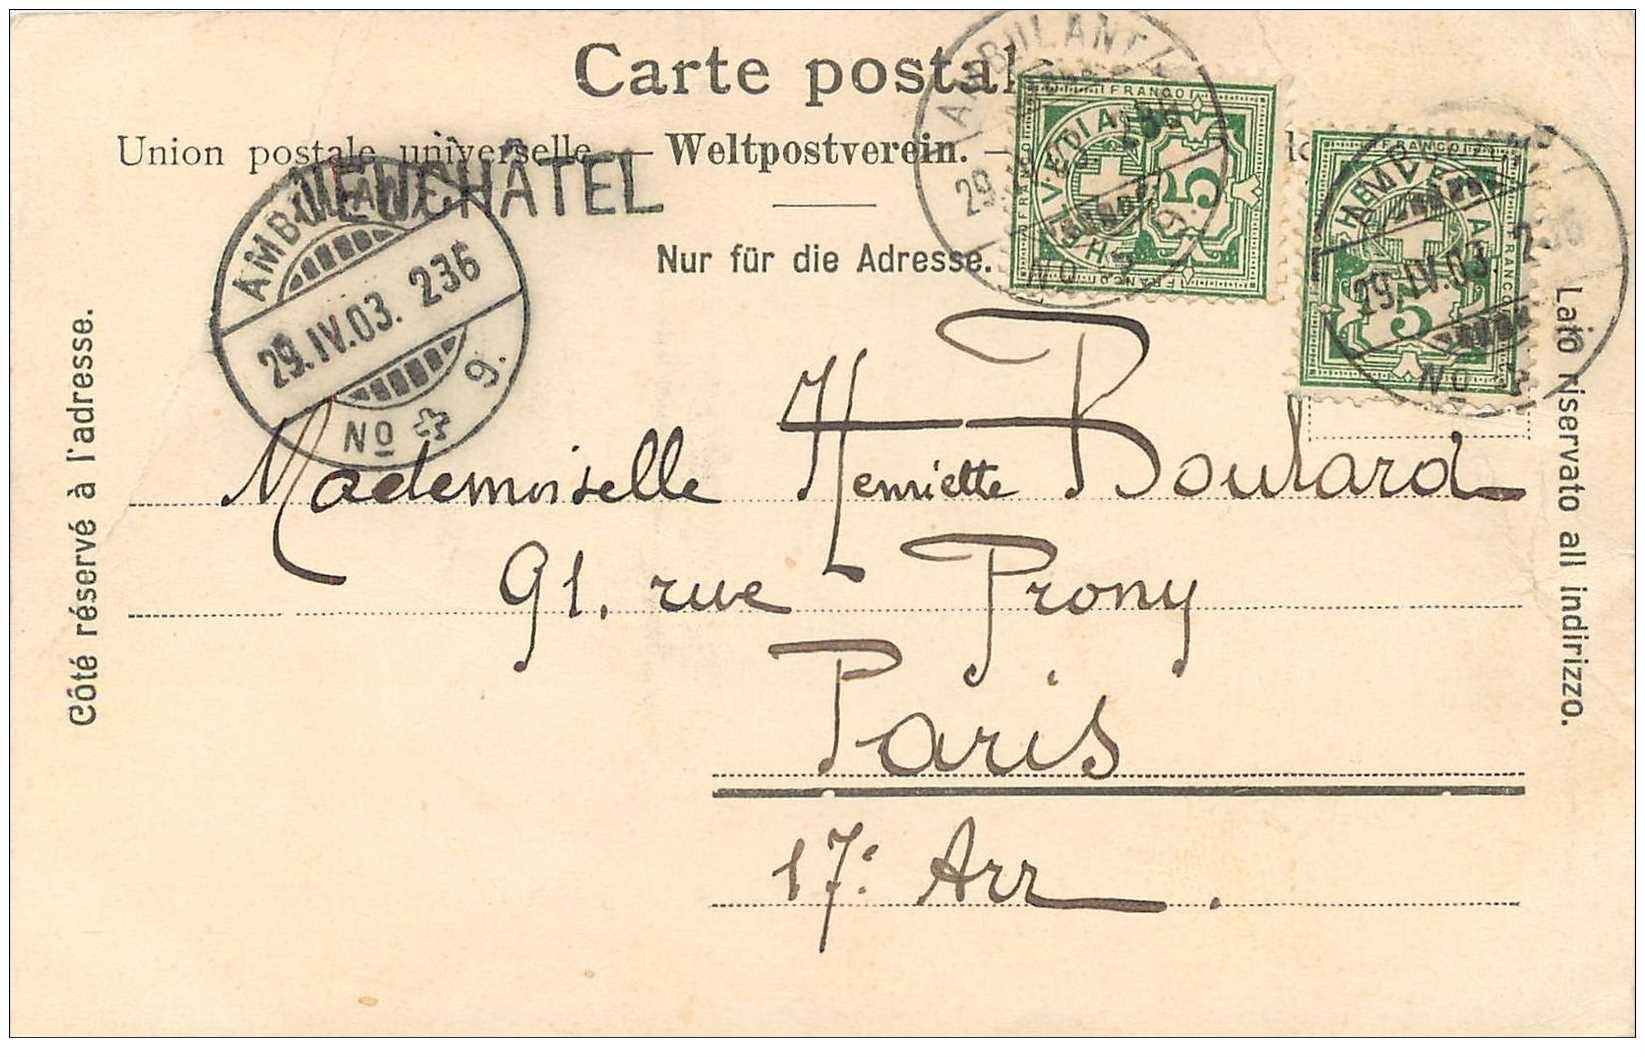 Carte postale
Union postale universelle. — Weltpostverein. —
NEUCHÂTEL
Nur für die Adresse.
AMBULANT
29.IV.03. 236
No 9.
AMBULANT
29. IV. 03. 236
No 9.
FRANCO
HELVETIA
5
FRANCO
HELVETIA
5
29.IV.03. 236
No
Côté réservé à l'adresse.
Lato riservato all indirizzo.
Mademoiselle Henriette Boulard
91, rue Prony
Paris
17e Arr.